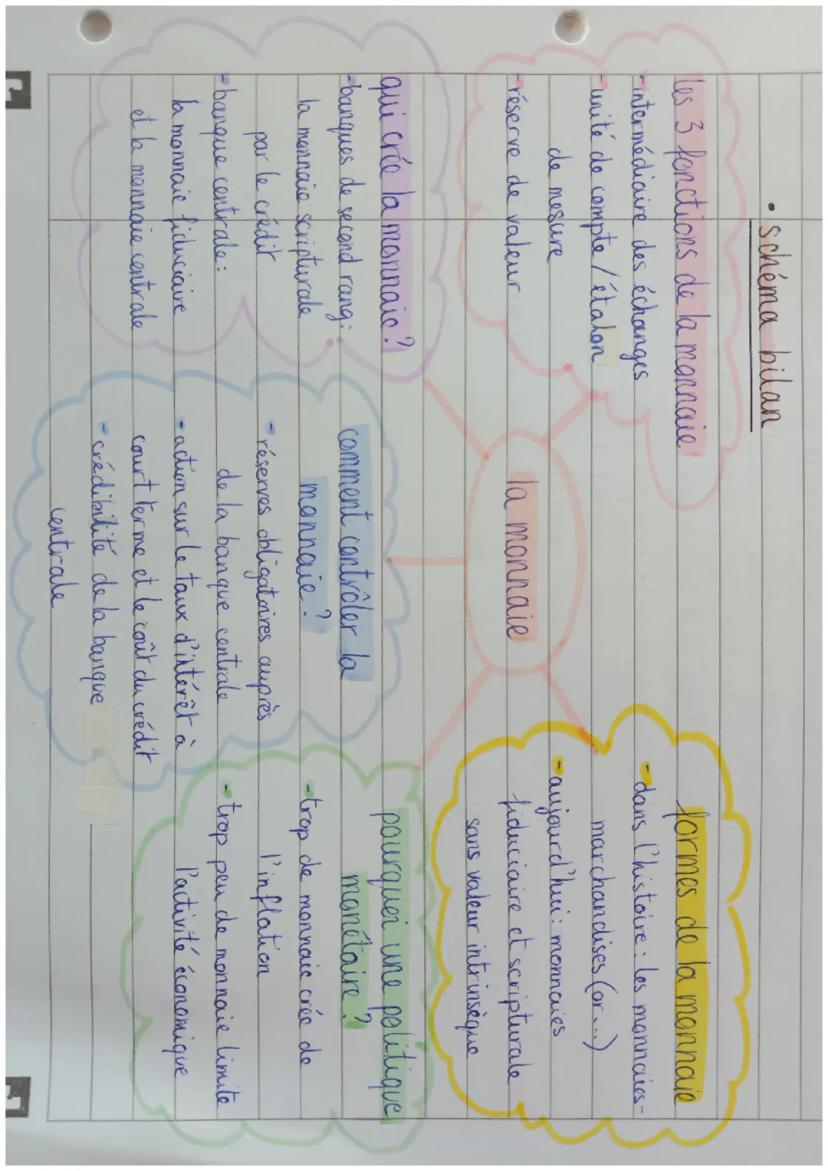 • schéma bilan
les 3 fonctions de la monnaie
- intermédiaire des échanges
- unité de compte / étalon
de mesure
- réserve de valeur
la monnaie
formes de la monnaie
- dans l'histoire : les monnaies-
marchandises (or...)
- aujourd'hui : monnaies
fiduciaire et scripturale
sans valeur intrinsèque
qui crée la monnaie ?
- banques de second rang :
la monnaie scripturale
par le crédit
- banque centrale :
la monnaie fiduciaire
et la monnaie centrale
comment contrôler la
monnaie ?
- réserves obligatoires auprès
de la banque centrale
- action sur le taux d'intérêt à
court terme et le coût du crédit
- crédibilité de la banque
centrale
pourquoi une politique
monétaire ?
- trop de monnaie crée de
l'inflation
- trop peu de monnaie limite
l'activité économique